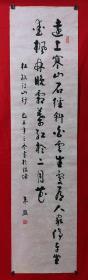 遠上寒山石径斜白雲生處有人家停車坐
愛楓林晚霜葉紅於二月花
杜牧詩山行 己丑年之冬書於